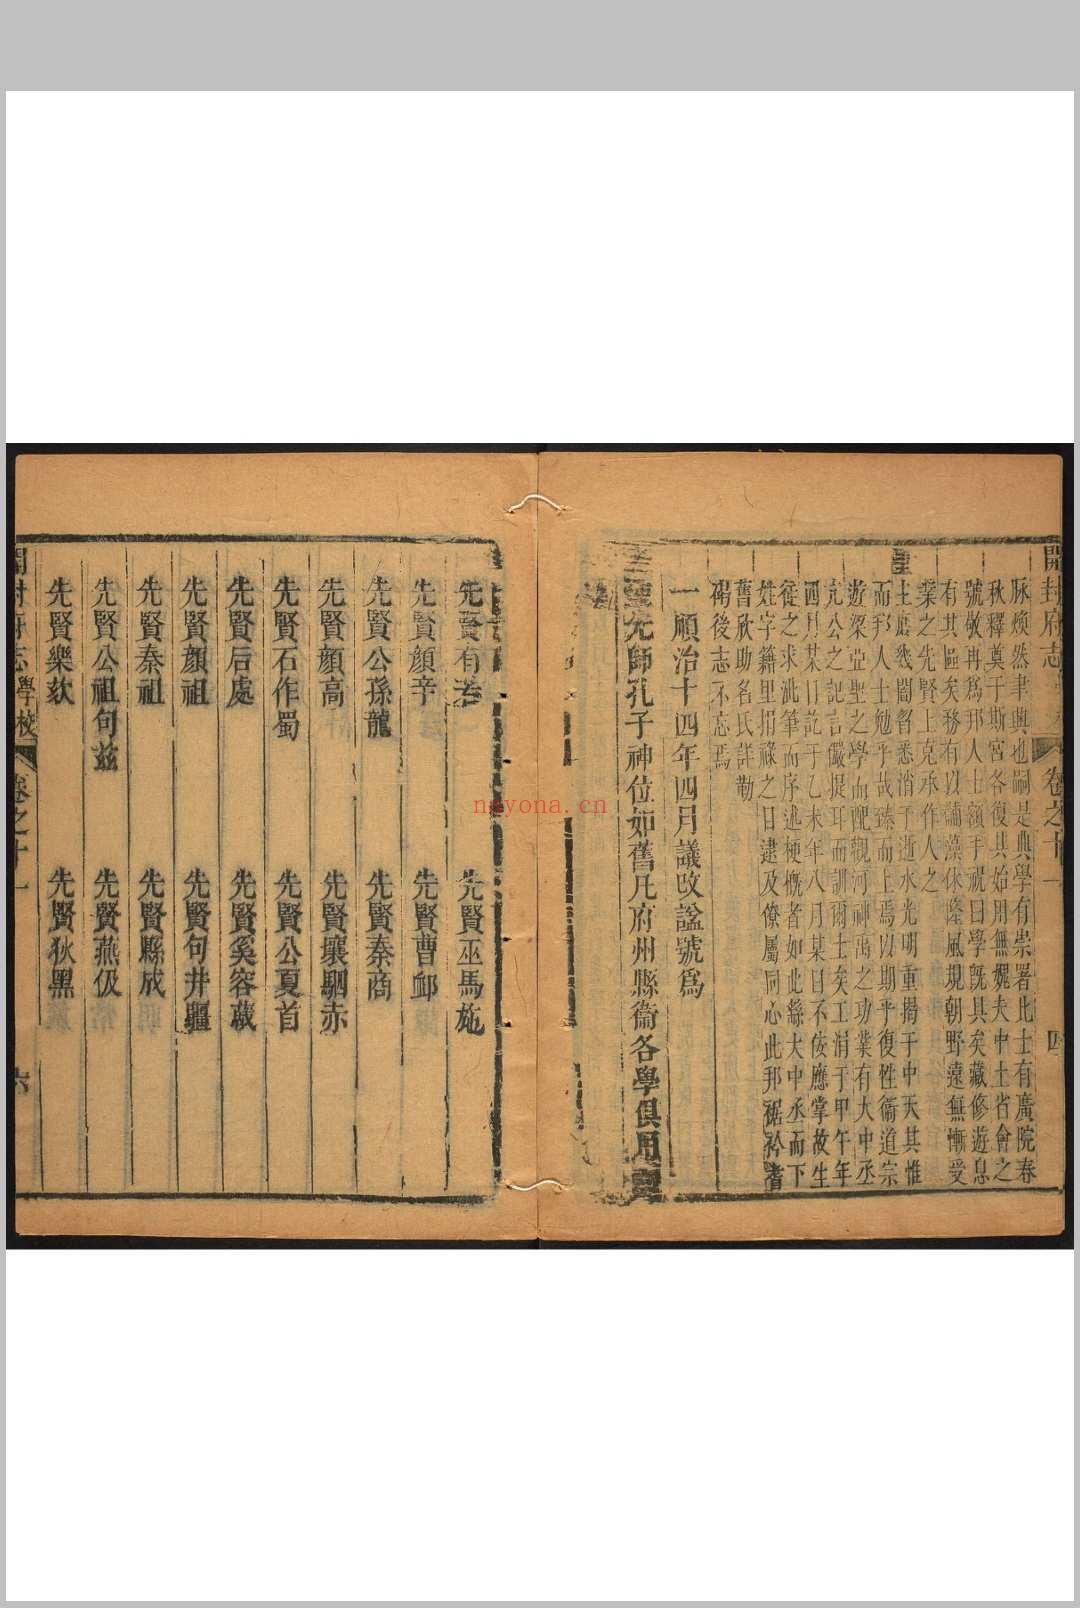 開封府志
卷之十一
四
脉煥然聿興也嗣是典學有崇署比士有廣院春
秋釋奠于斯宮各復其始用無媿夫中土省會之
號敬再爲邦人士額手祝曰學旣具矣藏修遊息
有其區矣務有以誦藻休隆風規朝野遠無慚受
業之先賢上克承作人之
聖
主磨幾闇智悉消于逝水光明重揭于中天其惟
而邦人士勉乎哉臻而上焉以期乎復性衞道宗
遊梁亞聖之學而配觀河神禹之功業有大中丞
亢公之記言儼提耳而訓爾士矣工涓于甲午年
四月某日訖于乙未年八月某日不佞應掌故生
從之求泚筆而序述梗槪者如此繇大中丞而下
姓字籍里捐祿之日逮及僚屬同心此邦裾衿耆
舊欣助名氏詳勒
碣後志不忘焉
一順治十四年四月議改諡號爲
至聖先師孔子神位如舊凡府州縣衞各學俱用
先賢有若
先賢巫馬施
先賢顔辛
先賢曹卹
先賢公孫龍
先賢秦商
先賢顔高
先賢壤駟赤
先賢石作蜀
先賢公夏首
先賢后處
先賢奚容蒧
先賢顔祖
先賢句井疆
先賢秦祖
先賢縣成
先賢公祖句茲
先賢燕伋
先賢樂欬
先賢狄黑
開封府志
學校
卷之十一
六
nayona.cn